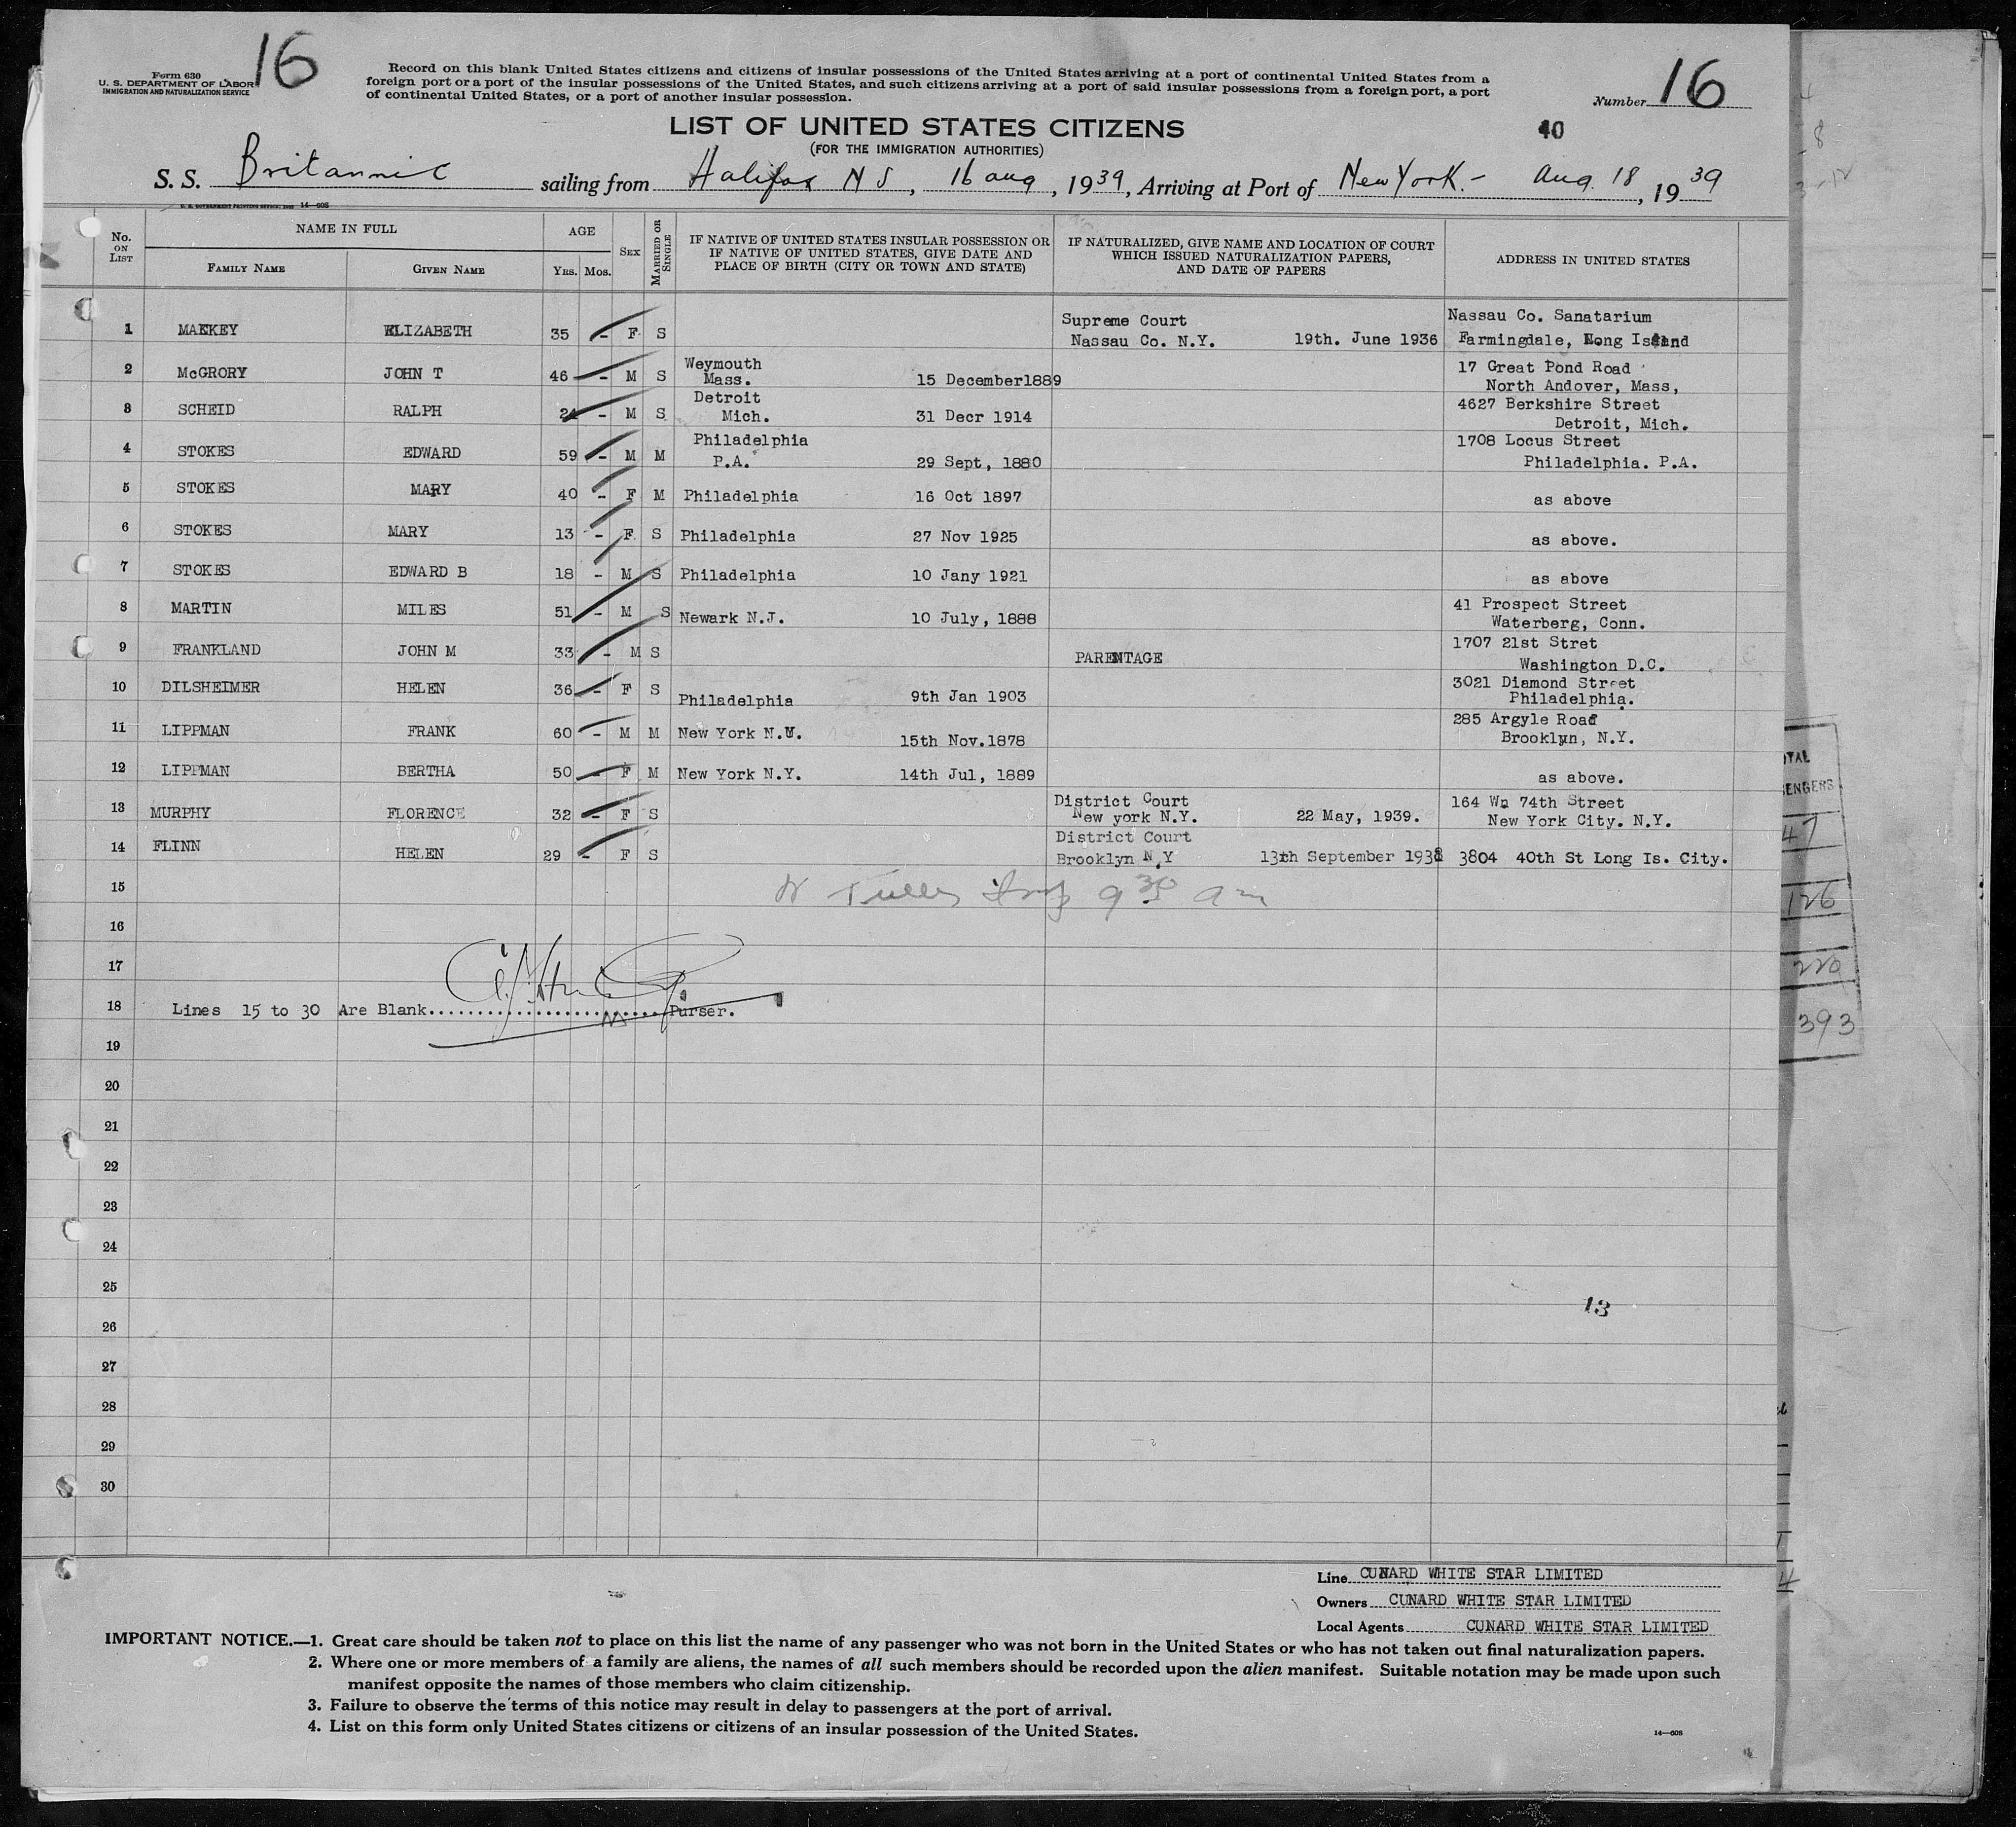 16
Form 630
U. S. DEPARTMENT OF LABOR
IMMIGRATION AND NATURALIZATION SERVICE
Record on this blank United States citizens and citizens of insular possessions of the United States arriving at a port of continental United States from a
foreign port or a port of the insular possessions of the United States, and such citizens arriving at a port of said insular possessions from a foreign port, a port
of continental United States, or a port of another insular possession.
Number 16
LIST OF UNITED STATES CITIZENS
(FOR THE IMMIGRATION AUTHORITIES)
40
S. S. Britannic sailing from Halifax N S, 16 aug, 1939, Arriving at Port of New York.- Aug. 18, 1939
U. S. GOVERNMENT PRINTING OFFICE: 14—608
No. ON LIST
NAME IN FULL
FAMILY NAME GIVEN NAME
AGE
YRS. MOS.
SEX
MARRIED OR SINGLE
IF NATIVE OF UNITED STATES INSULAR POSSESSION OR
IF NATIVE OF UNITED STATES, GIVE DATE AND
PLACE OF BIRTH (CITY OR TOWN AND STATE)
IF NATURALIZED, GIVE NAME AND LOCATION OF COURT
WHICH ISSUED NATURALIZATION PAPERS,
AND DATE OF PAPERS
ADDRESS IN UNITED STATES
1 MACKEY ELIZABETH 35 - F S Supreme Court Nassau Co. N.Y. 19th. June 1936 Nassau Co. Sanatarium Farmingdale, Long Island
2 McGRORY JOHN T 46 - M S Weymouth Mass. 15 December1889 17 Great Pond Road North Andover, Mass,
3 SCHEID RALPH 24 - M S Detroit Mich. 31 Decr 1914 4627 Berkshire Street Detroit, Mich.
4 STOKES EDWARD 59 - M M Philadelphia P.A. 29 Sept, 1880 1708 Locus Street Philadelphia. P.A.
5 STOKES MARY 40 - F M Philadelphia 16 Oct 1897 as above
6 STOKES MARY 13 - F. S Philadelphia 27 Nov 1925 as above.
7 STOKES EDWARD B 18 - M S Philadelphia 10 Jany 1921 as above
8 MARTIN MILES 51 - M S Newark N.J. 10 July, 1888 41 Prospect Street Waterberg, Conn.
9 FRANKLAND JOHN M 33 - M S PARENTAGE 1707 21st Stret Washington D.C.
10 DILSHEIMER HELEN 36 - F S Philadelphia 9th Jan 1903 3021 Diamond Street Philadelphia.
11 LIPPMAN FRANK 60 - M M New York N.Y. 15th Nov.1878 285 Argyle Road Brooklyn, N.Y.
12 LIPPMAN BERTHA 50 - F M New York N.Y. 14th Jul, 1889 as above.
13 MURPHY FLORENCE 32 - F S District Court New york N.Y. 22 May, 1939. 164 Wn 74th Street New York City. N.Y.
14 FLINN HELEN 29 - F S District Court Brooklyn N.Y 13th September 1938 3804 40th St Long Is. City.
15 9 30 am
16
17
18 Lines 15 to 30 Are Blank Purser.
19
20
21
22
23
24
25
13
26
27
28
29
30
Line CUNARD WHITE STAR LIMITED
Owners CUNARD WHITE STAR LIMITED
Local Agents CUNARD WHITE STAR LIMITED
IMPORTANT NOTICE.—1. Great care should be taken not to place on this list the name of any passenger who was not born in the United States or who has not taken out final naturalization papers.
2. Where one or more members of a family are aliens, the names of all such members should be recorded upon the alien manifest. Suitable notation may be made upon such
manifest opposite the names of those members who claim citizenship.
3. Failure to observe the terms of this notice may result in delay to passengers at the port of arrival.
4. List on this form only United States citizens or citizens of an insular possession of the United States.
14—608
47
126
220
393